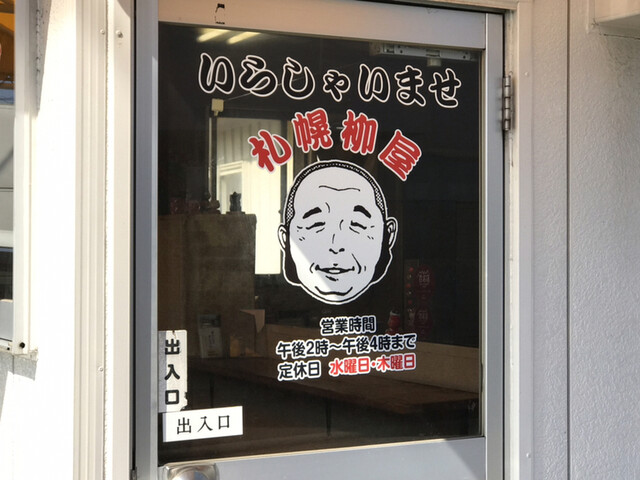 いらしゃいませ
札幌柳屋
営業時間
午後2時～午後4時まで
定休日 水曜日・木曜日
出入口
出入口